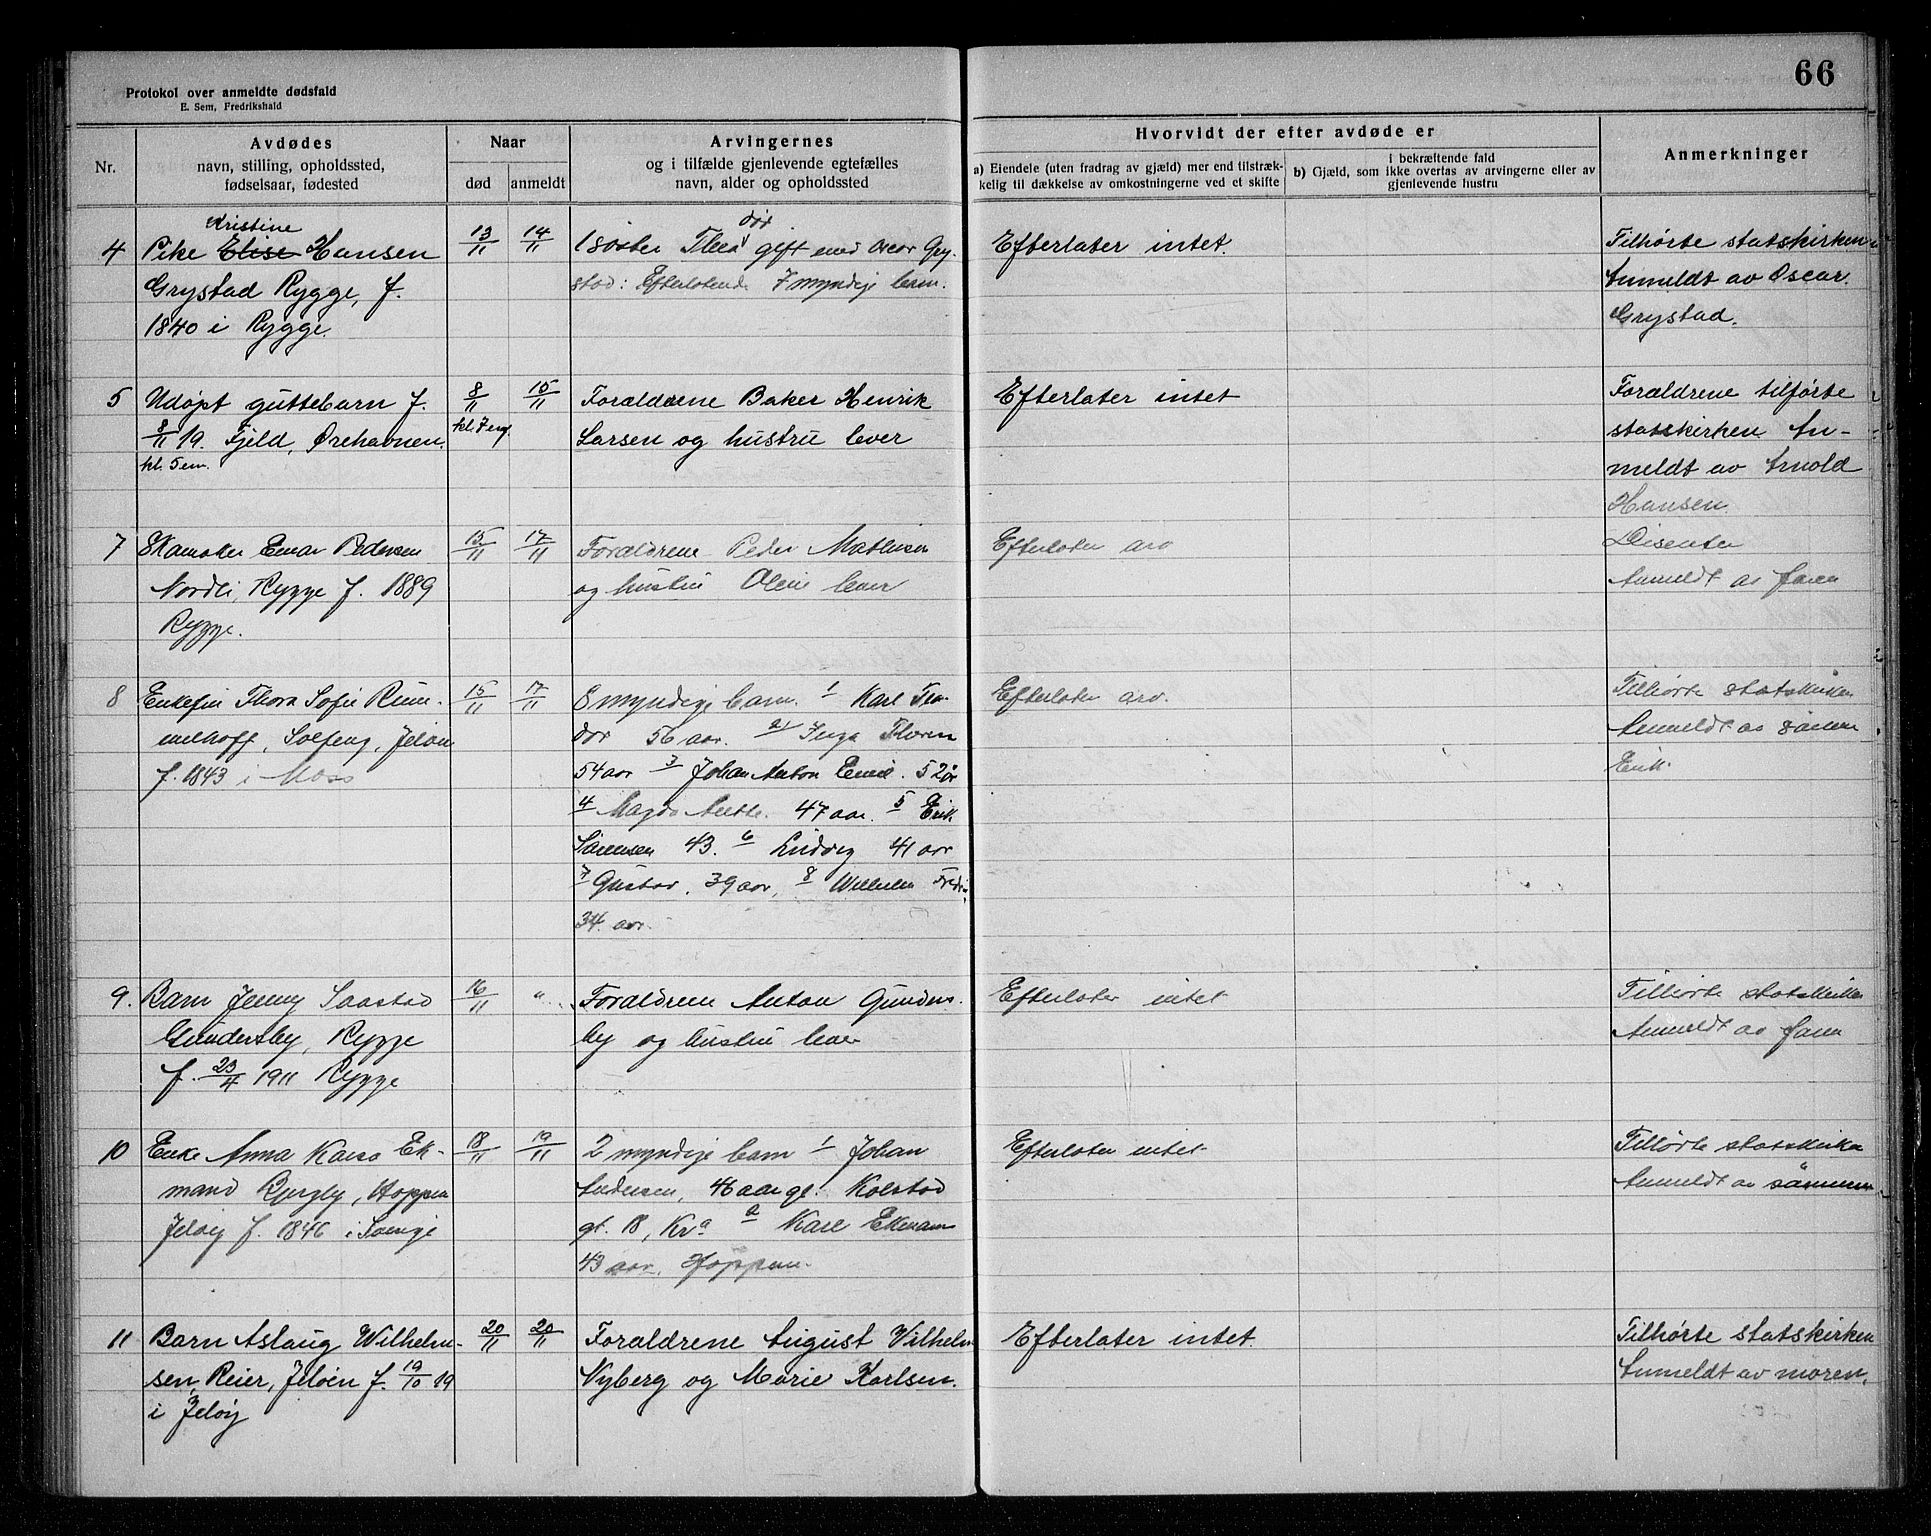 66
Protokol over anmeldte dødsfald
E. Sem, Fredrikshald
Nr.
Avdødes
navn, stilling, opholdssted,
fødselsaar, fødested
Naar
død
anmeldt
Arvingernes
og i tilfælde gjenlevende egtefælles
navn, alder og opholdssted
Hvorvidt der efter avdøde er
a) Eiendele (uten fradrag av gjæld) mer end tilstræk-
kelig til dækkelse av omkostningerne ved et skifte
i bekræftende fald
b) Gjæld, som ikke overtas av arvingerne eller av
gjenlevende hustru
Anmerkninger
4
Kristine
Pike Elise Hansen
Grystad Rygge, f.
1840 i Rygge.
13/11
14/11
død
1 søster Thea gift med Oscar Gry-
stad: Efterlatende 7 myndige barn.
Efterlater intet.
Tilhørte statskirken
Anmeldt av Oscar
Grystad.
5
Udøpt guttebarn f.
8/11 19. Fjeld, Ørehavnen.
kl. 5 em.
8/11
kl. 7 em.
15/11
Forældrene Baker Henrik
Larsen og hustru lever
Efterlater intet
Forældrene tilhørte
statskirken An-
meldt av Arnold
Hansen.
7
Skomaker Einar Pedersen
Nordli, Rygge f. 1889
Rygge.
15/11
17/11
Forældrene Peder Mathisen
og hustru Oline lever
Efterlater arv
Disenter
Anmeldt av faren
8
Enkefru Thora Sofie Rum-
melhoff, Solfeng, Jeløen
f. 1843 i Moss
15/11
17/11
8 myndige barn. 1 Karl Teo-
dor 56 aar. 2/ Inga
54 aar 3 Johan Anton Emil. 52 år
4 Magda Anette. 47 aar. 5 Erik
Sørensen 43. 6 Ludvig 41 aar
7 Gustav, 39 aar, 8 Wilhelm
34 aar.
Efterlater arv.
Tilhørte statskirken
Anmeldt av sønnen
Erik.
9.
Barn Jenny Saastad
Gundersby, Rygge
f. 23/4 1911 Rygge
16/11
"
Forældrene Anton Gunders-
by og hustru lever
Efterlater intet
Tilhørte statskirken
Anmeldt av faren
10
Enke Anna Kaisa Ek-
mand Bjergby, Hoppern
Jeløy f. 1846 i Sverige
18/11
19/11
2 myndige barn 1 Johan
Andersen, 46 aar gl. Kolstad
gt. 18, Kra 2 Karl Ekmann
43 aar, Hoppern.
Efterlater intet
Tilhørte statskirken
Anmeldt av sønnen
11
Barn Aslaug Wilhelm-
sen, Reier, Jeløen f. 19/10 19
i Jeløy
20/11
20/11
Forældrene August Vilhelm
Nyberg og Marie Karlsen.
Efterlater intet.
Tilhørte statskirken
Anmeldt av moren.